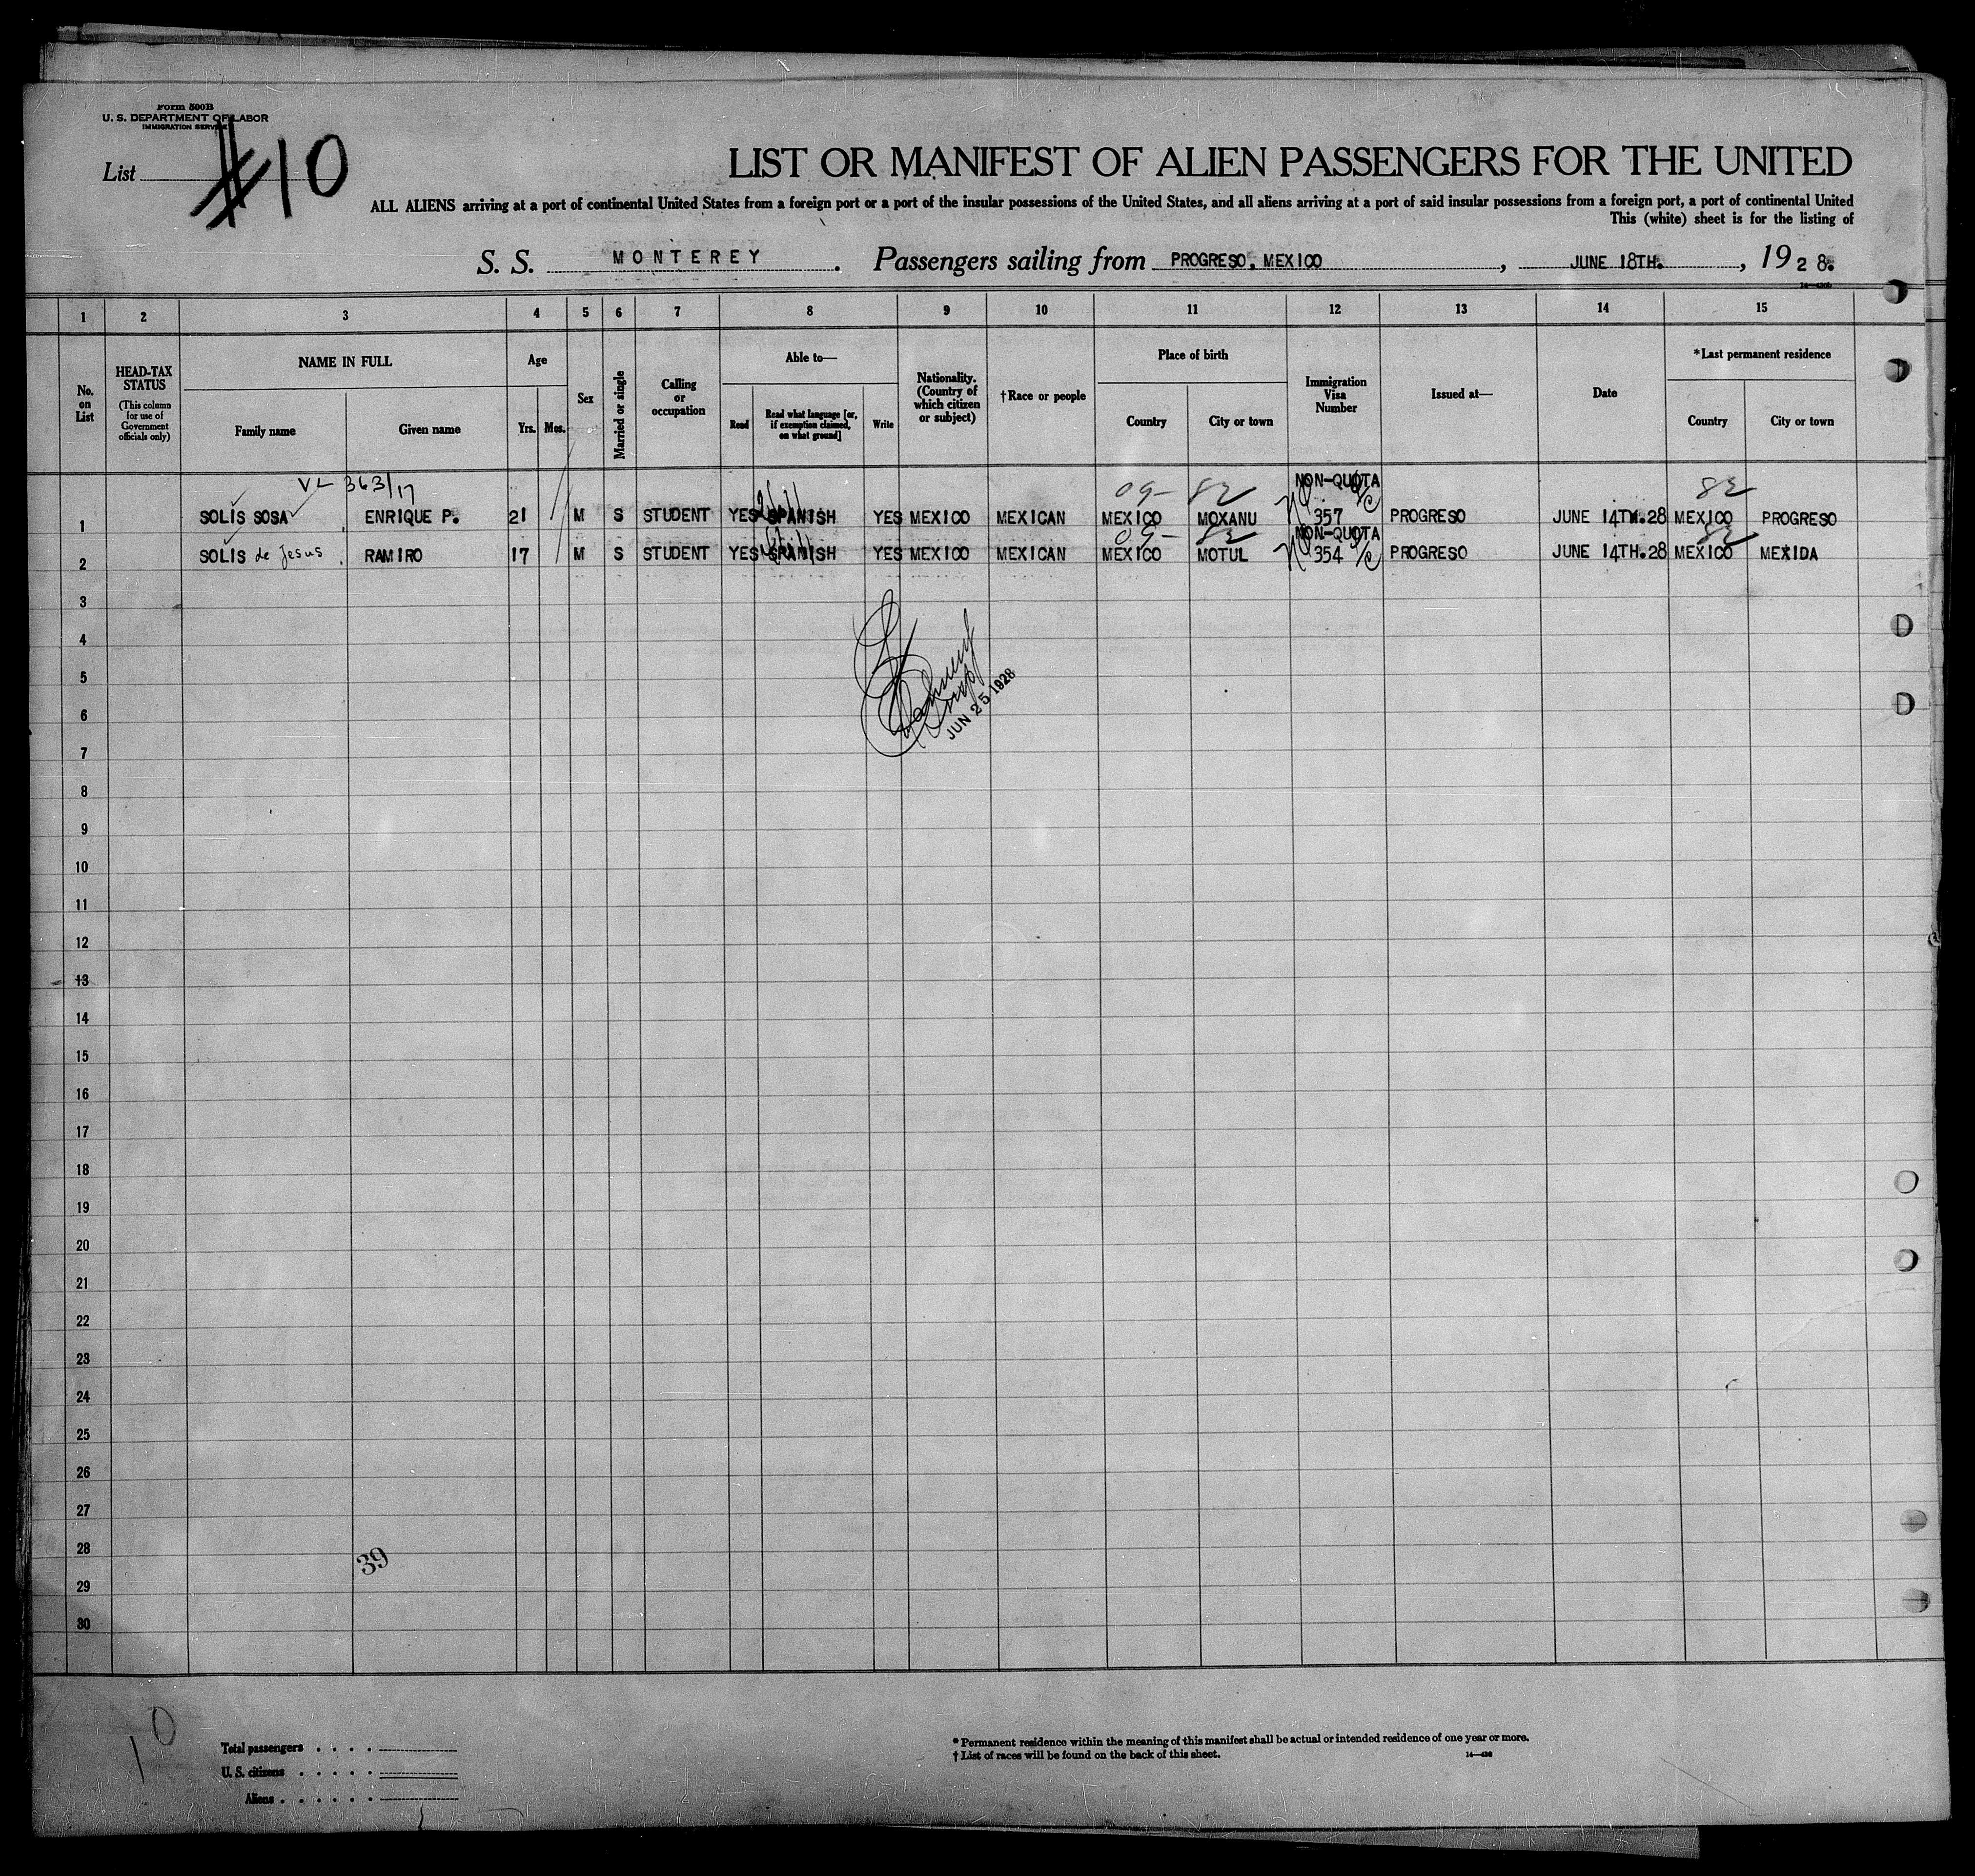 Form 500B
U. S. DEPARTMENT OF LABOR
IMMIGRATION SERVICE
List #10
LIST OR MANIFEST OF ALIEN PASSENGERS FOR THE UNITED
ALL ALIENS arriving at a port of continental United States from a foreign port or a port of the insular possessions of the United States, and all aliens arriving at a port of said insular possessions from a foreign port, a port of continental United
This (white) sheet is for the listing of
S. S. MONTEREY. Passengers sailing from PROGRESO, MEXICO, JUNE 18TH., 1928.
1 2 3 4 5 6 7 8 9 10 11 12 13 14 15
No. on List
HEAD-TAX STATUS
(This column for use of Government officials only)
NAME IN FULL
Family name
Given name
Age
Yrs. Mos.
Sex
Married or single
Calling or occupation
Able to—
Read
Read what language [or, if exemption claimed, on what ground]
Write
Nationality. (Country of which citizen or subject)
†Race or people
Place of birth
Country
City or town
Immigration Visa Number
Issued at—
Date
*Last permanent residence
Country
City or town
VL 363/17
09- 82 NON-QUOTA 82
1 SOLIS SOSA ENRIQUE P. 21 M S STUDENT YES SPANISH YES MEXICO MEXICAN MEXICO MOXANU 357 PROGRESO JUNE 14TH.28 MEXICO PROGRESO
09- 82 NON-QUOTA 82
2 SOLIS de Jesus RAMIRO 17 M S STUDENT YES SPANISH YES MEXICO MEXICAN MEXICO MOTUL 354 PROGRESO JUNE 14TH.28 MEXICO MEXIDA
3
4
5
6
JUN 25 1928
7
8
9
10
11
12
13
14
15
16
17
18
19
20
21
22
23
24
25
26
27
28
39
29
30
10
Total passengers
U. S. citizens
Aliens
* Permanent residence within the meaning of this manifest shall be actual or intended residence of one year or more.
† List of races will be found on the back of this sheet.